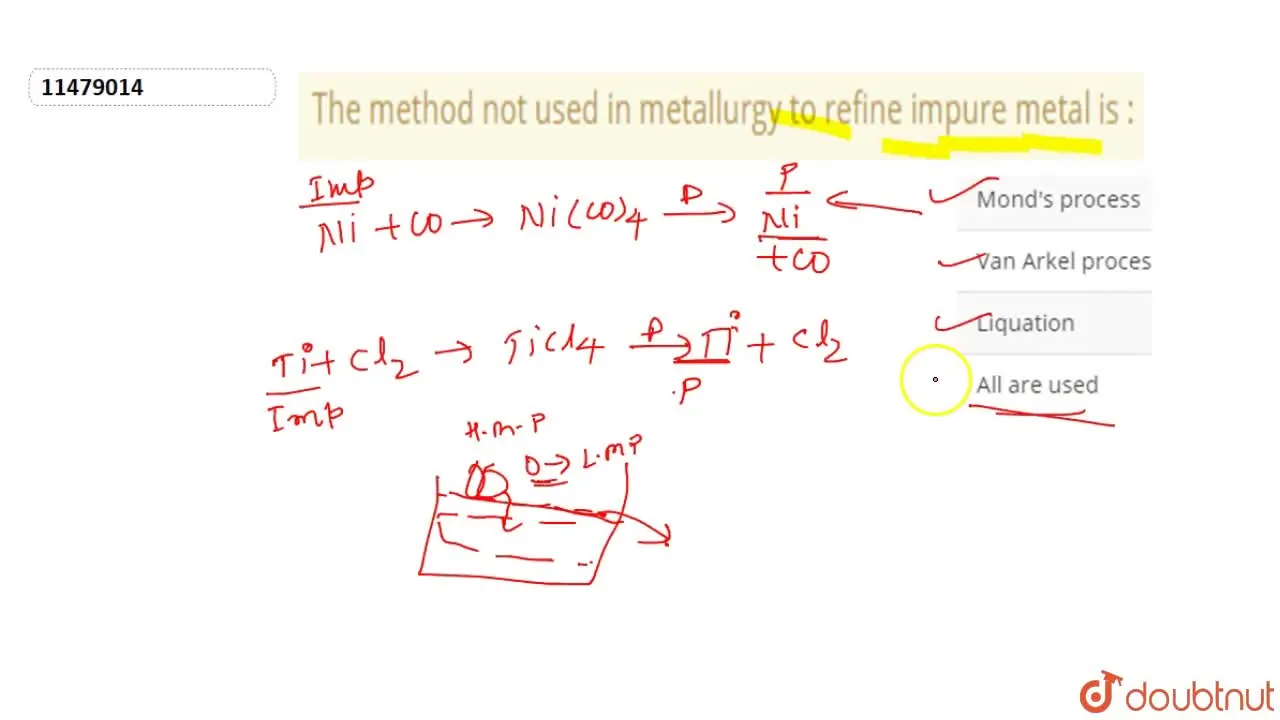 11479014
The method not used in metallurgy to refine impure metal is :
Imp
Ni + CO → Ni(CO)4 → Ni + CO
P
Mond's process
Van Arkel proces
Liquation
All are used
Ti + Cl2 → TiCl4 → Ti + Cl2
Imp
.P
H.M.P
→ L.M.P
doubtnut